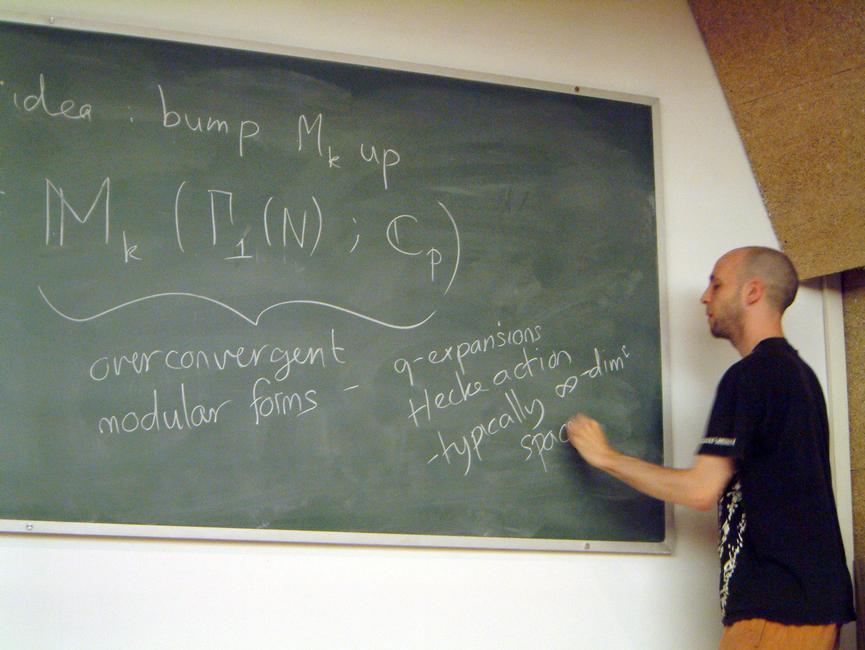 idea : bump M_k up
𝕄_k (Γ_1(N) ; ℂ_p)
overconvergent
modular forms -
q-expansions
Hecke action
-typically ∞-dim
spac